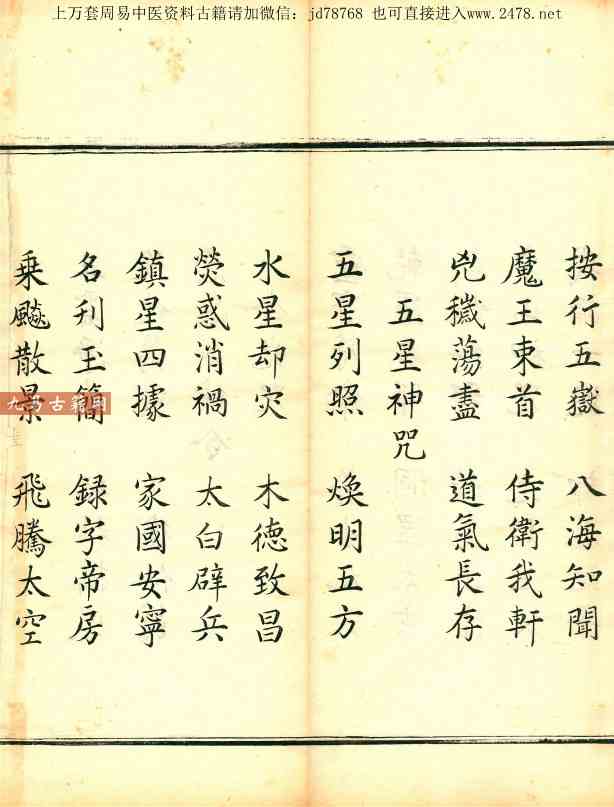 上万套周易中医资料古籍请加微信：jd78768 也可直接进入www.2478.net
按行五嶽 八海知聞
魔王束首 侍衛我軒
兇穢蕩盡 道氣長存
五星神咒
五星列照 煥明五方
水星却灾 木德致昌
熒惑消禍 太白辟兵
鎮星四據 家國安寧
名刋玉簡 録字帝房
乗飈散景 飛騰太空
九万古籍网